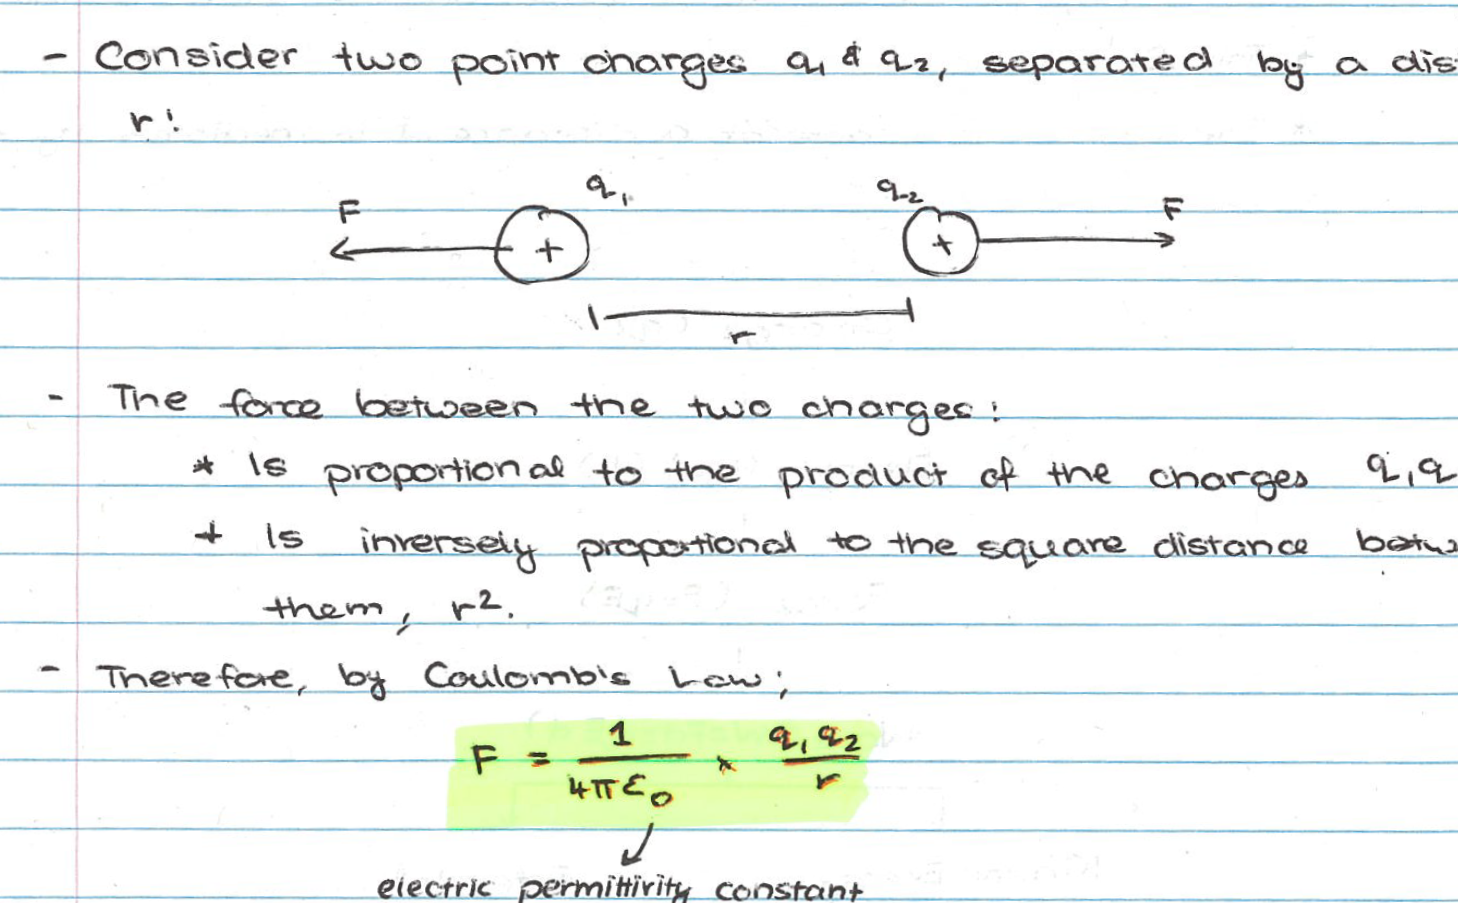 - Consider two point charges q₁ & q₂, separated by a dis
r:
F q₁ q₂ F
+ +
r
- The force between the two charges:
* Is proportional to the product of the charges q₁q
* Is inversely proportional to the square distance betw
them, r².
- Therefore, by Coulomb's Law;
F = 1/4πε₀ × q₁q₂/r
electric permittivity constant